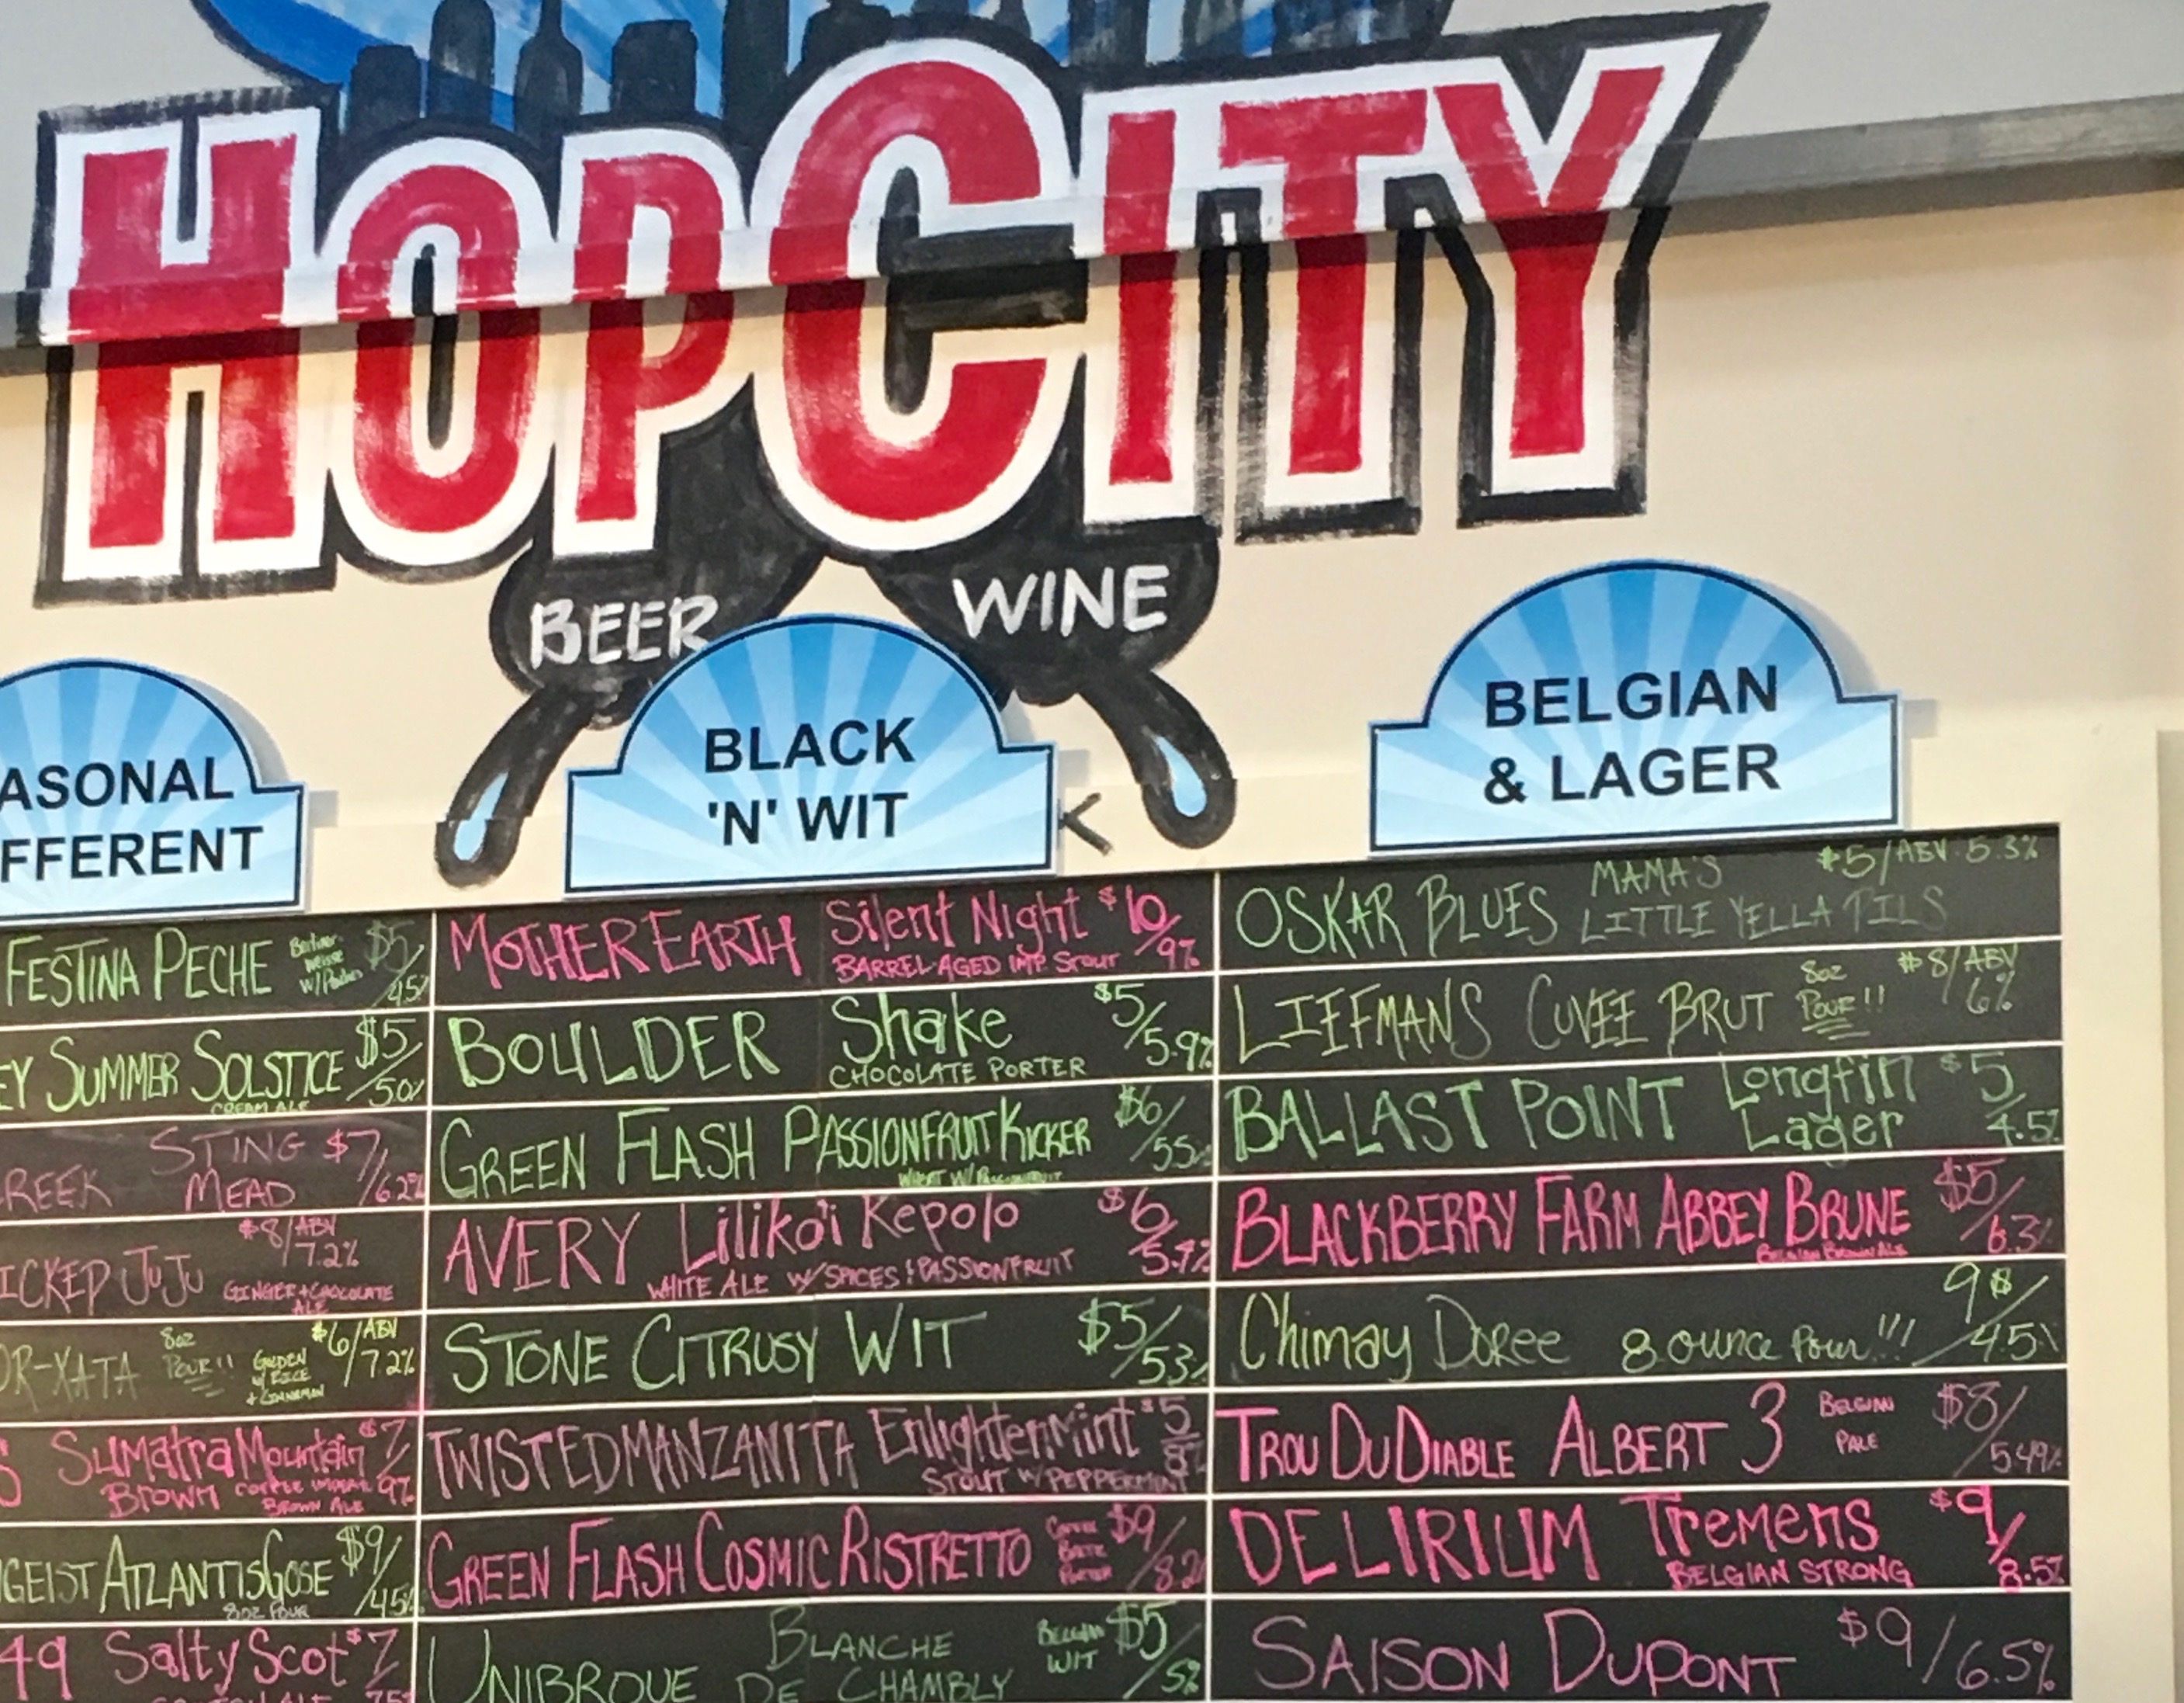 HOPCITY
BEER
WINE
ASONAL
FFERENT
FESTINA PECHE Berliner Weisse W/Peches $5/4.5%
EY SUMMER SOLSTICE $5/5.0%
CREAM ALE
REEK STING MEAD $7/6.2%
ICKED JUJU $8/ABV 7.2%
GINGER + CHOCOLATE ALE
OR-XATA 8oz POUR!! GOLDEN W/ RICE + CINNAMON $6/ABV 7.2%
S Sumatra Mountain Brown $7/9%
COFFEE IMPERIAL BROWN ALE
GEIST ATLANTIS GOSE $9/4.5%
8oz POUR
49 Salty Scot $7
BLACK
'N' WIT
MOTHER EARTH Silent Night $10/9%
BARREL-AGED IMP. STOUT
BOULDER Shake $5/5.9%
CHOCOLATE PORTER
GREEN FLASH PASSIONFRUIT KICKER $6/5.5%
WHEAT W/ PASSIONFRUIT
AVERY Liliko'i Kepolo $6/5.4%
WHITE ALE W/SPICES & PASSIONFRUIT
STONE CITRUSY WIT $5/5.3%
TWISTED MANZANITA EnlightenMint $5/8%
STOUT W/ PEPPERMINT
GREEN FLASH COSMIC RISTRETTO $9/8.2%
UNIBROUE BLANCHE DE CHAMBLY BELGIAN WIT $5/5%
BELGIAN
& LAGER
OSKAR BLUES MAMA'S LITTLE YELLA PILS $5/ABV 5.3%
LIEFMANS CUVEE BRUT 8oz POUR!! $8/ABV 6%
BALLAST POINT Longfin Lager $5/4.5%
BLACKBERRY FARM ABBEY BRUNE $5/6.3%
BELGIAN BROWN ALE
Chimay Doree 8 ounce Pour!!! 9$/4.5%
TROU DU DIABLE ALBERT 3 BELGIAN PALE $8/5.49%
DELIRIUM Tremens $9/8.5%
BELGIAN STRONG
SAISON DUPONT $9/6.5%